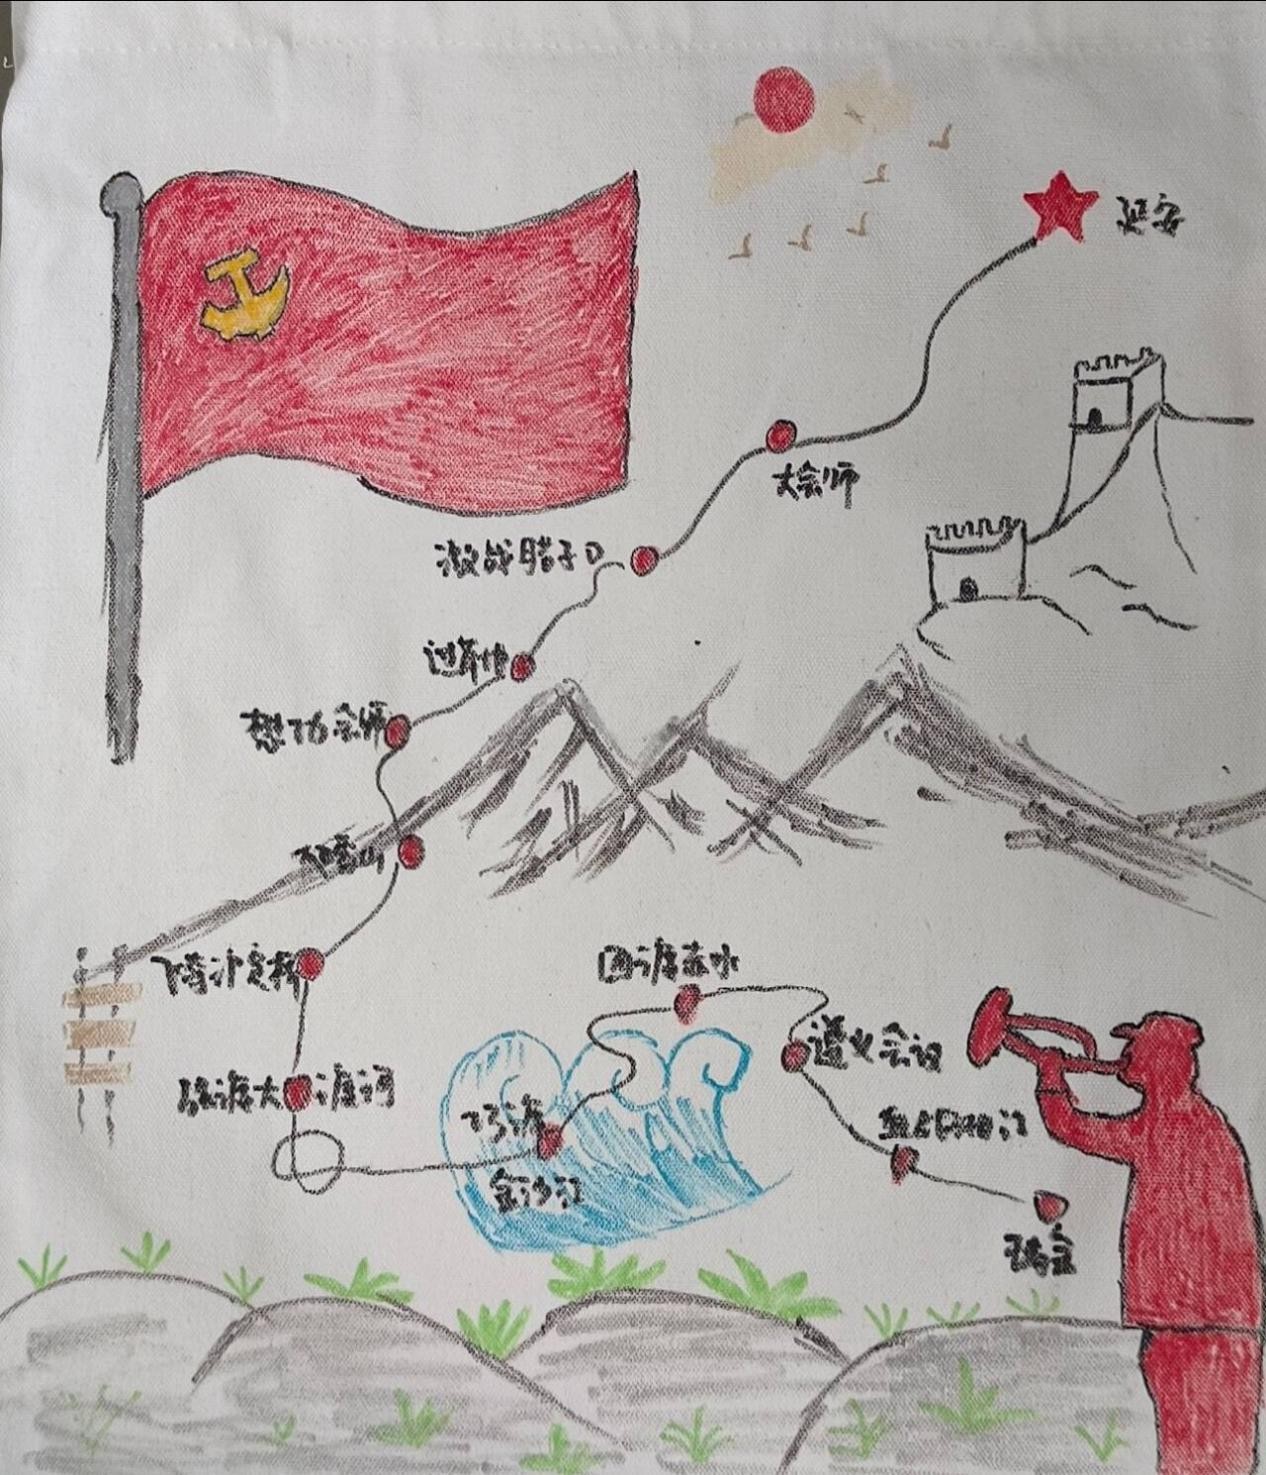 延安
大会师
激战腊子口
过草地
懋功会师
飞夺泸定桥
强渡大渡河
四渡赤水
遵义会议
巧渡
金沙江
血战湘江
瑞金